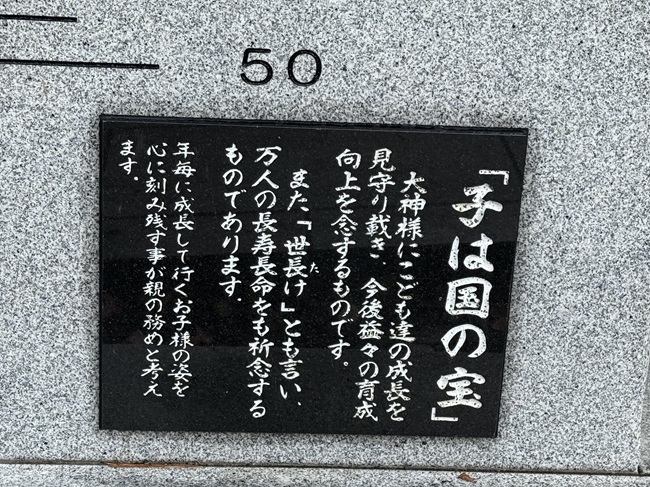 50
「子は国の宝」
大神様にこども達の成長を
見守り載き、今後益々の育成
向上を念するものです。
また「世長け」とも言い、
た
万人の長寿長命をも祈念する
ものであります.
年毎に成長して行くお子様の姿を
心に刻み残す事が親の務めと考え
ます.